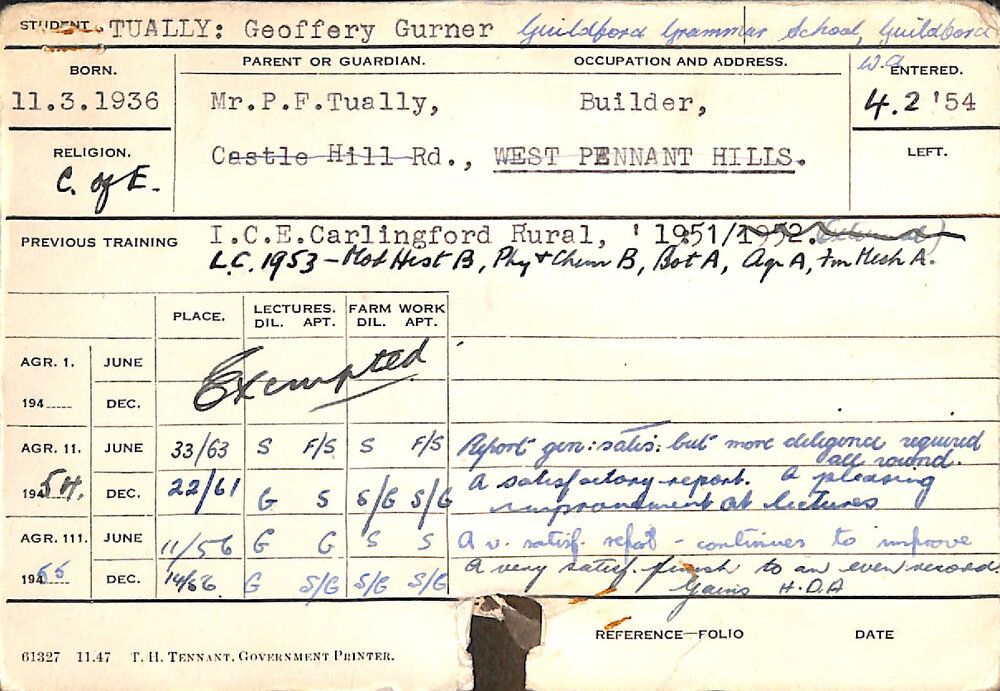 STUDENT. TUALLY: Geoffery Gurner Guildford Grammar School, Guildford
W.A.
BORN. PARENT OR GUARDIAN. OCCUPATION AND ADDRESS. ENTERED.
11.3.1936 Mr.P.F.Tually, Builder, 4.2.'54
RELIGION. Castle Hill Rd., WEST PENNANT HILLS. LEFT.
C. of E.
PREVIOUS TRAINING I.C.E.Carlingford Rural, '1951/1952.
L.C. 1953 - Mod Hist B, Phy + Chem B, Bot A, Agr A, Fm Mech A.
PLACE. LECTURES. FARM WORK
DIL. APT. DIL. APT.
AGR. 1. JUNE Exempted
194 DEC.
AGR. 11. JUNE 33/63 S F/S S F/S Report gen: satis: but more diligence required
all round.
1954. DEC. 22/61 G S S/G S/G A satisfactory report. A pleasing
improvement at lectures
AGR. 111. JUNE 11/56 G G S S A v. satisf. report - continues to improve
1955 DEC. 14/56 G S/G S/G S/G A very satisf. finish to an even record.
Gains H.D.A
REFERENCE—FOLIO DATE
61327 11.47 T. H. TENNANT, GOVERNMENT PRINTER.